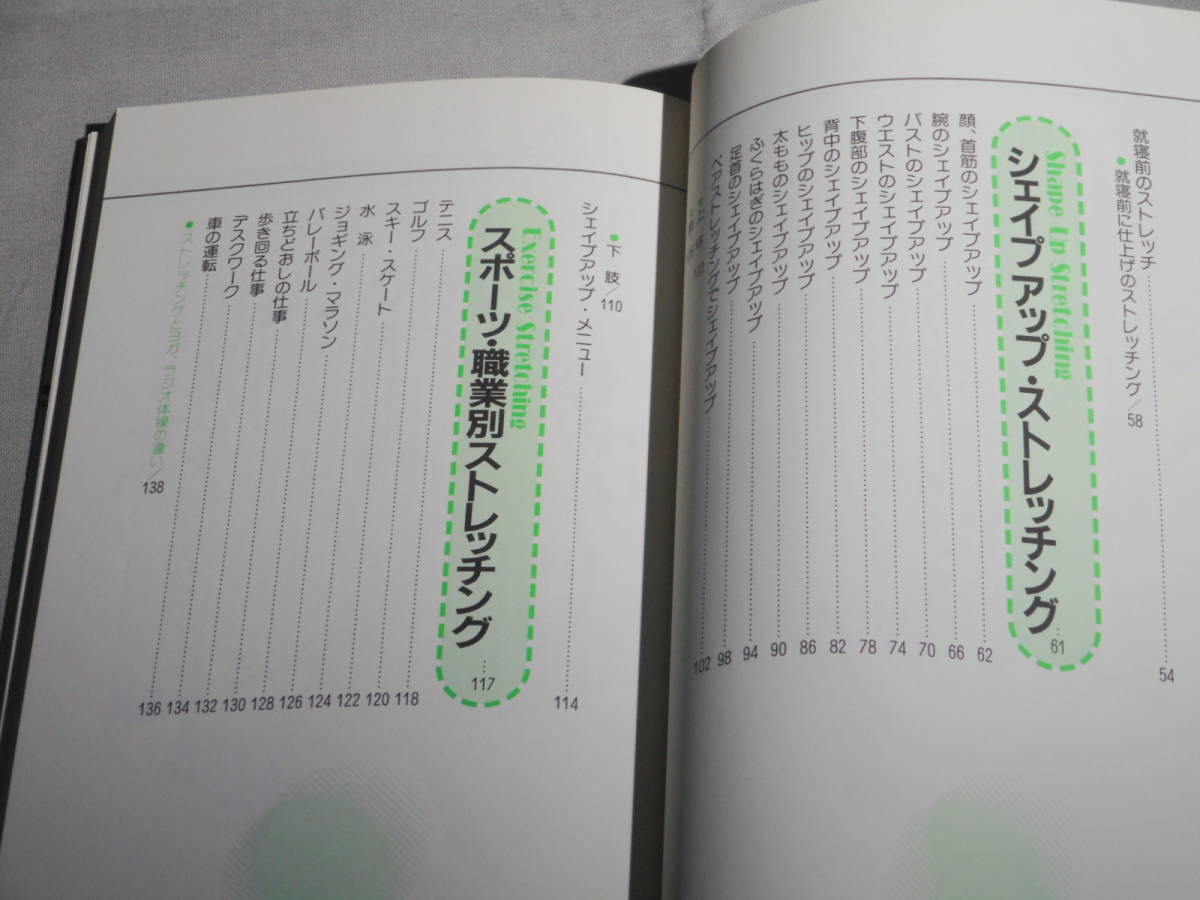 就寝前のストレッチ……54
●就寝前に仕上げのストレッチング/58
Shape Up Stretching
シェイプアップ・ストレッチング…61
顔、首筋のシェイプアップ……62
腕のシェイプアップ……66
バストのシェイプアップ……70
ウエストのシェイプアップ……74
下腹部のシェイプアップ……78
背中のシェイプアップ……82
ヒップのシェイプアップ……86
太もものシェイプアップ……90
ふくらはぎのシェイプアップ……94
足首のシェイプアップ……98
ペアストレッチングでシェイプアップ……102
●下 肢/110
シェイプアップ・メニュー……114
Exercise Stretching
スポーツ・職業別ストレッチング…117
テニス……118
ゴルフ……120
スキー・スケート……122
水 泳……124
ジョギング・マラソン……126
バレーボール……128
立ちどおしの仕事……130
歩き回る仕事……132
デスクワーク……134
車の運転……136
●ストレッチングとヨガ、ラジオ体操の違い/138